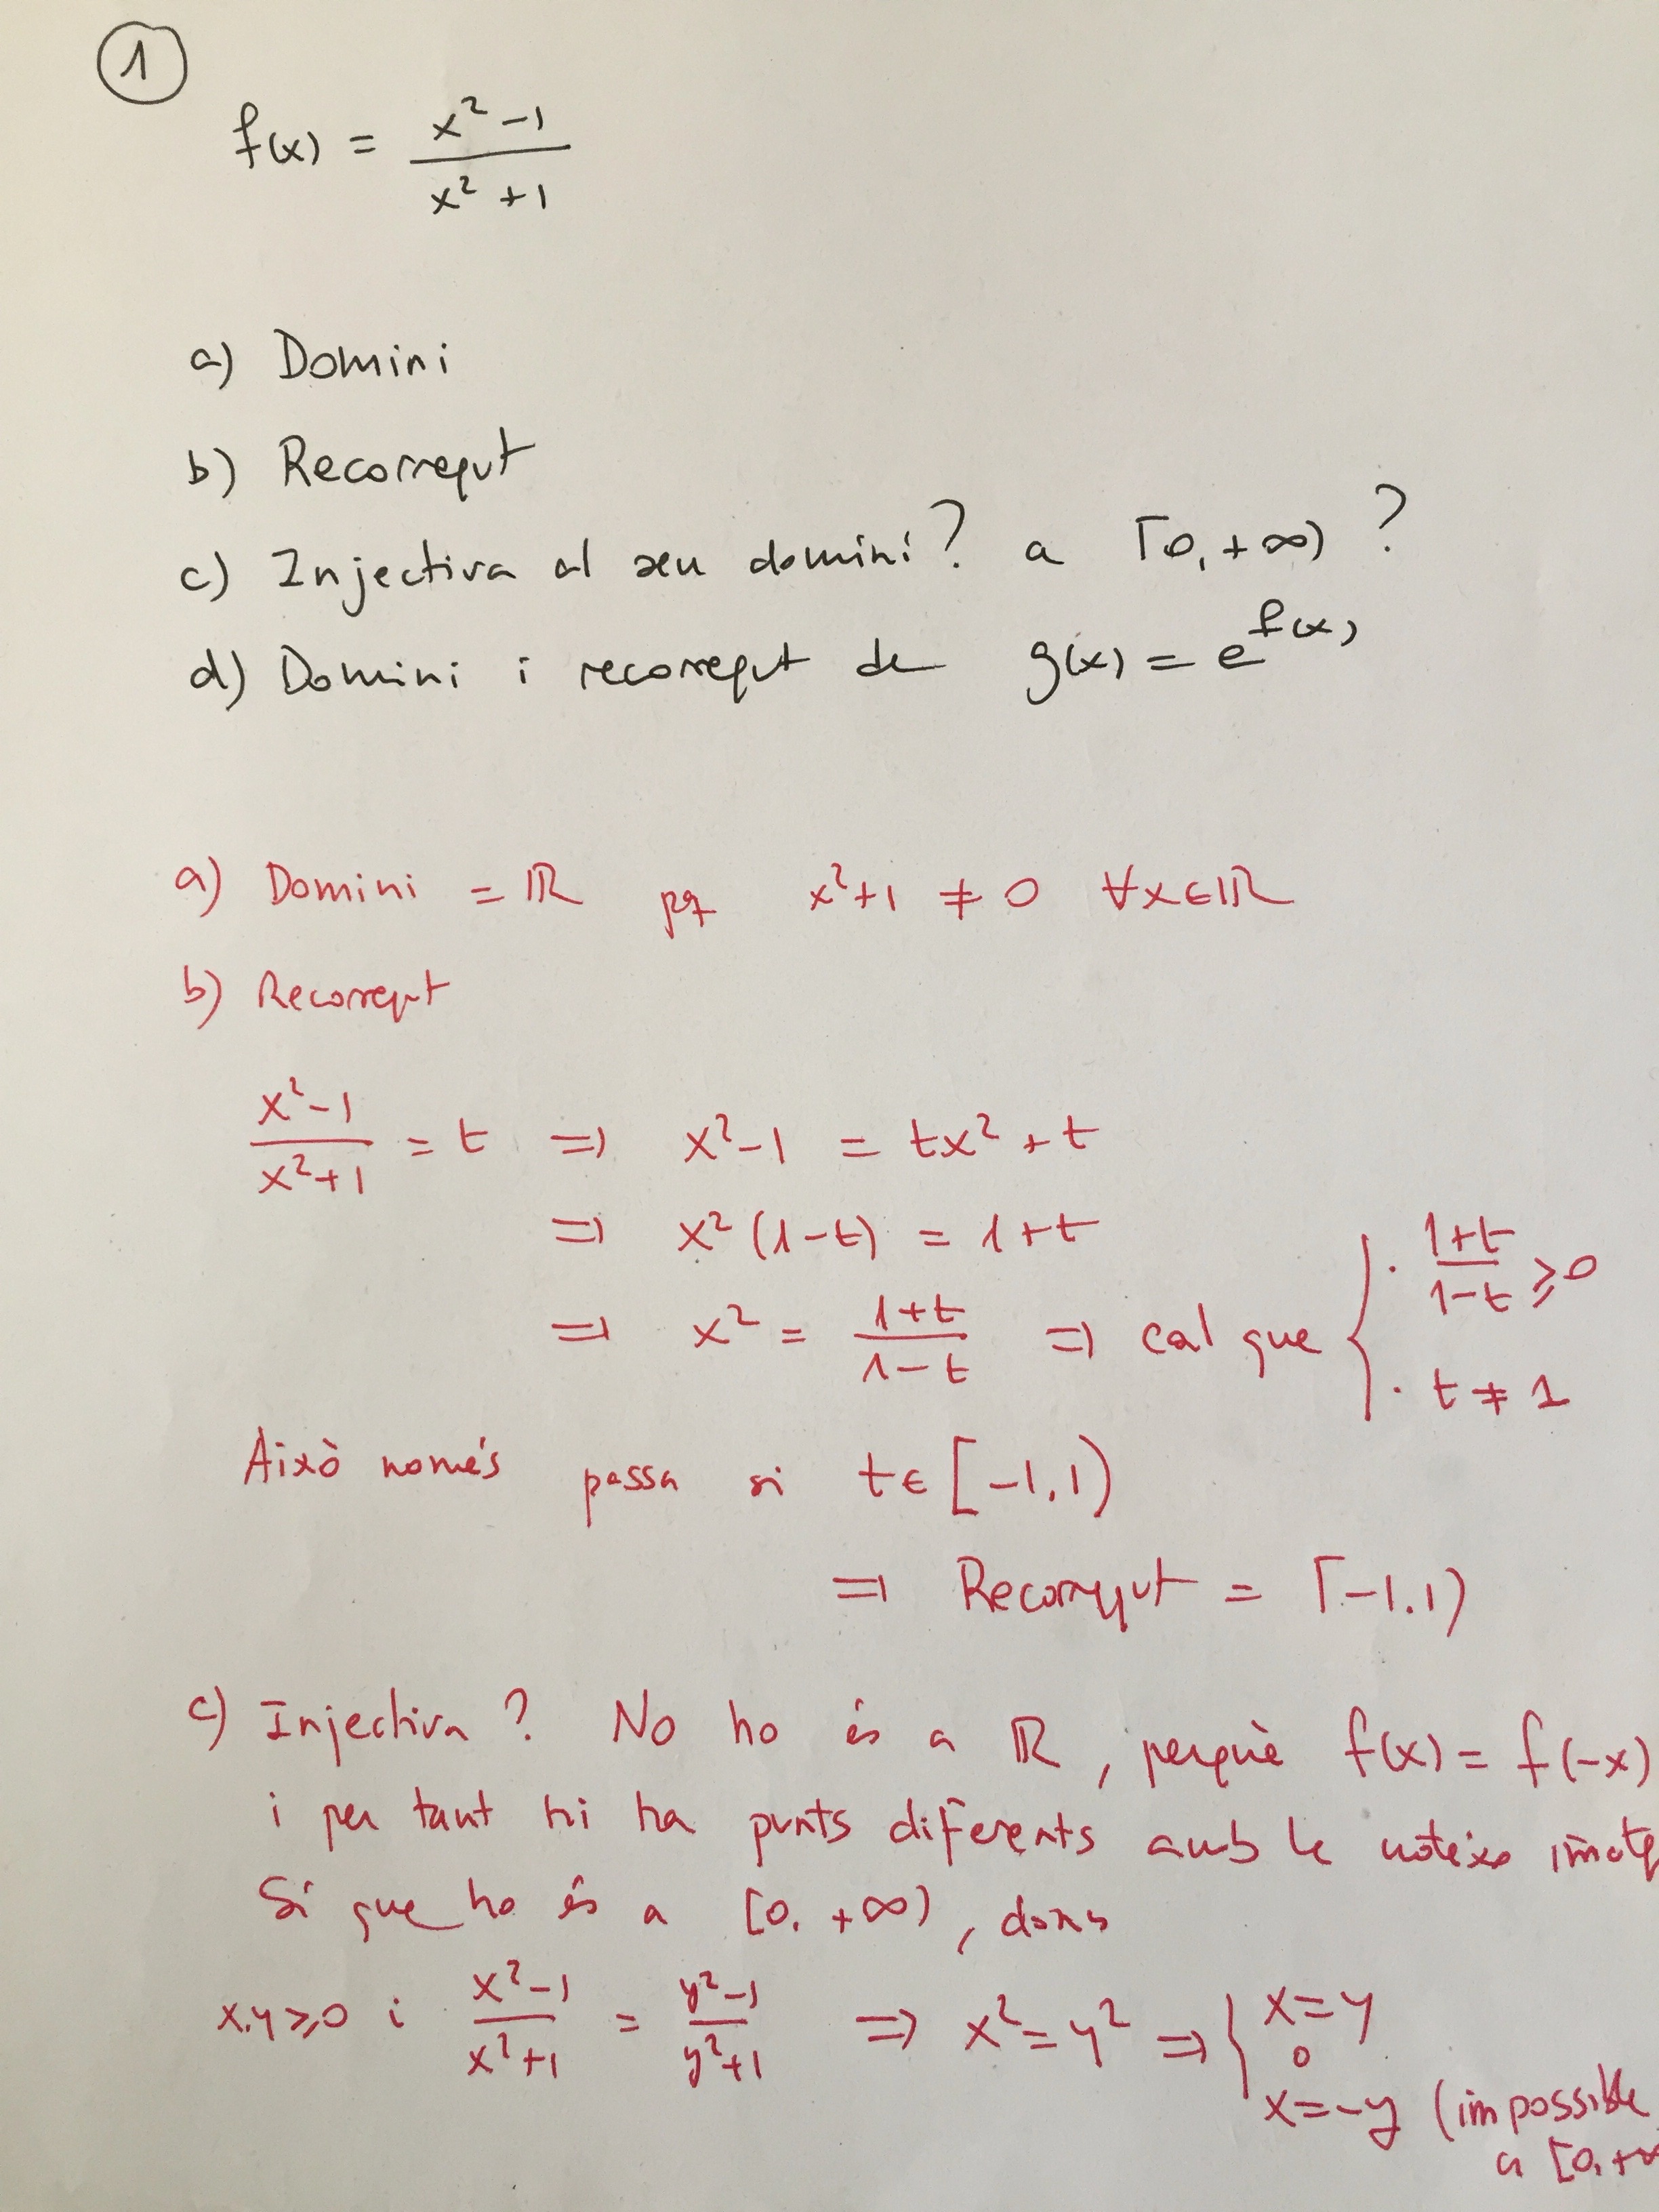 1
f(x) = (x² - 1)/(x² + 1)
a) Domini
b) Recorregut
c) Injectiva al seu domini? a [0, +∞) ?
d) Domini i recorregut de g(x) = e^f(x)
a) Domini = ℝ pq x²+1 ≠ 0 ∀x∈ℝ
b) Recorregut
(x²-1)/(x²+1) = t ⇒ x²-1 = tx² + t
⇒ x² (1-t) = 1+t
⇒ x² = (1+t)/(1-t) ⇒ cal que { · (1+t)/(1-t) ≥ 0
· t ≠ 1
Això només passa si t ∈ [-1, 1)
⇒ Recorregut = [-1, 1)
c) Injectiva? No ho és a ℝ, perquè f(x) = f(-x)
i per tant hi ha punts diferents amb la mateixa imatg
Sí que ho és a [0, +∞), doncs
x,y ≥ 0 i (x²-1)/(x²+1) = (y²-1)/(y²+1) ⇒ x² = y² ⇒ { x = y
o
x = -y (impossible
a [0, +∞